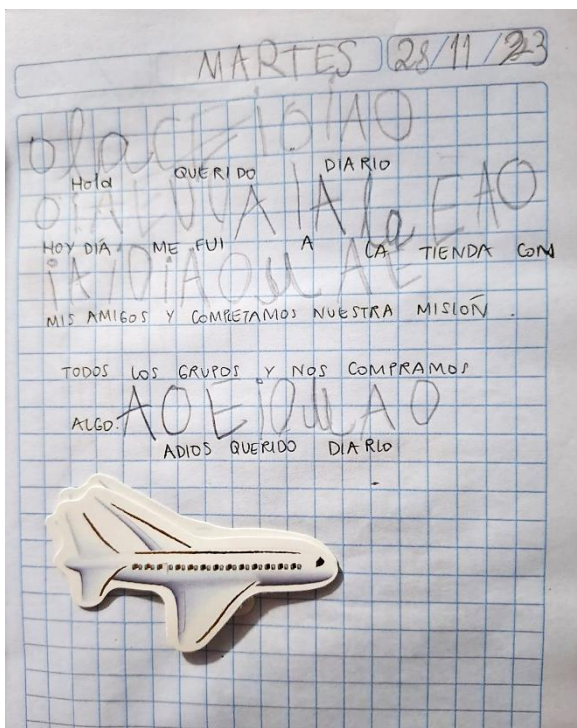 MARTES 28/11/23
olaCEIOIAO
Hola QUERIDO DIARIO
HOY DÍA ME FUI A LA TIENDA CON
MIS AMIGOS Y COMPLETAMOS NUESTRA MISIOÑ.
TODOS LOS GRUPOS Y NOS COMPRAMOS
AOEiOUAO
ALGO.
ADIOS QUERIDO DIARIO